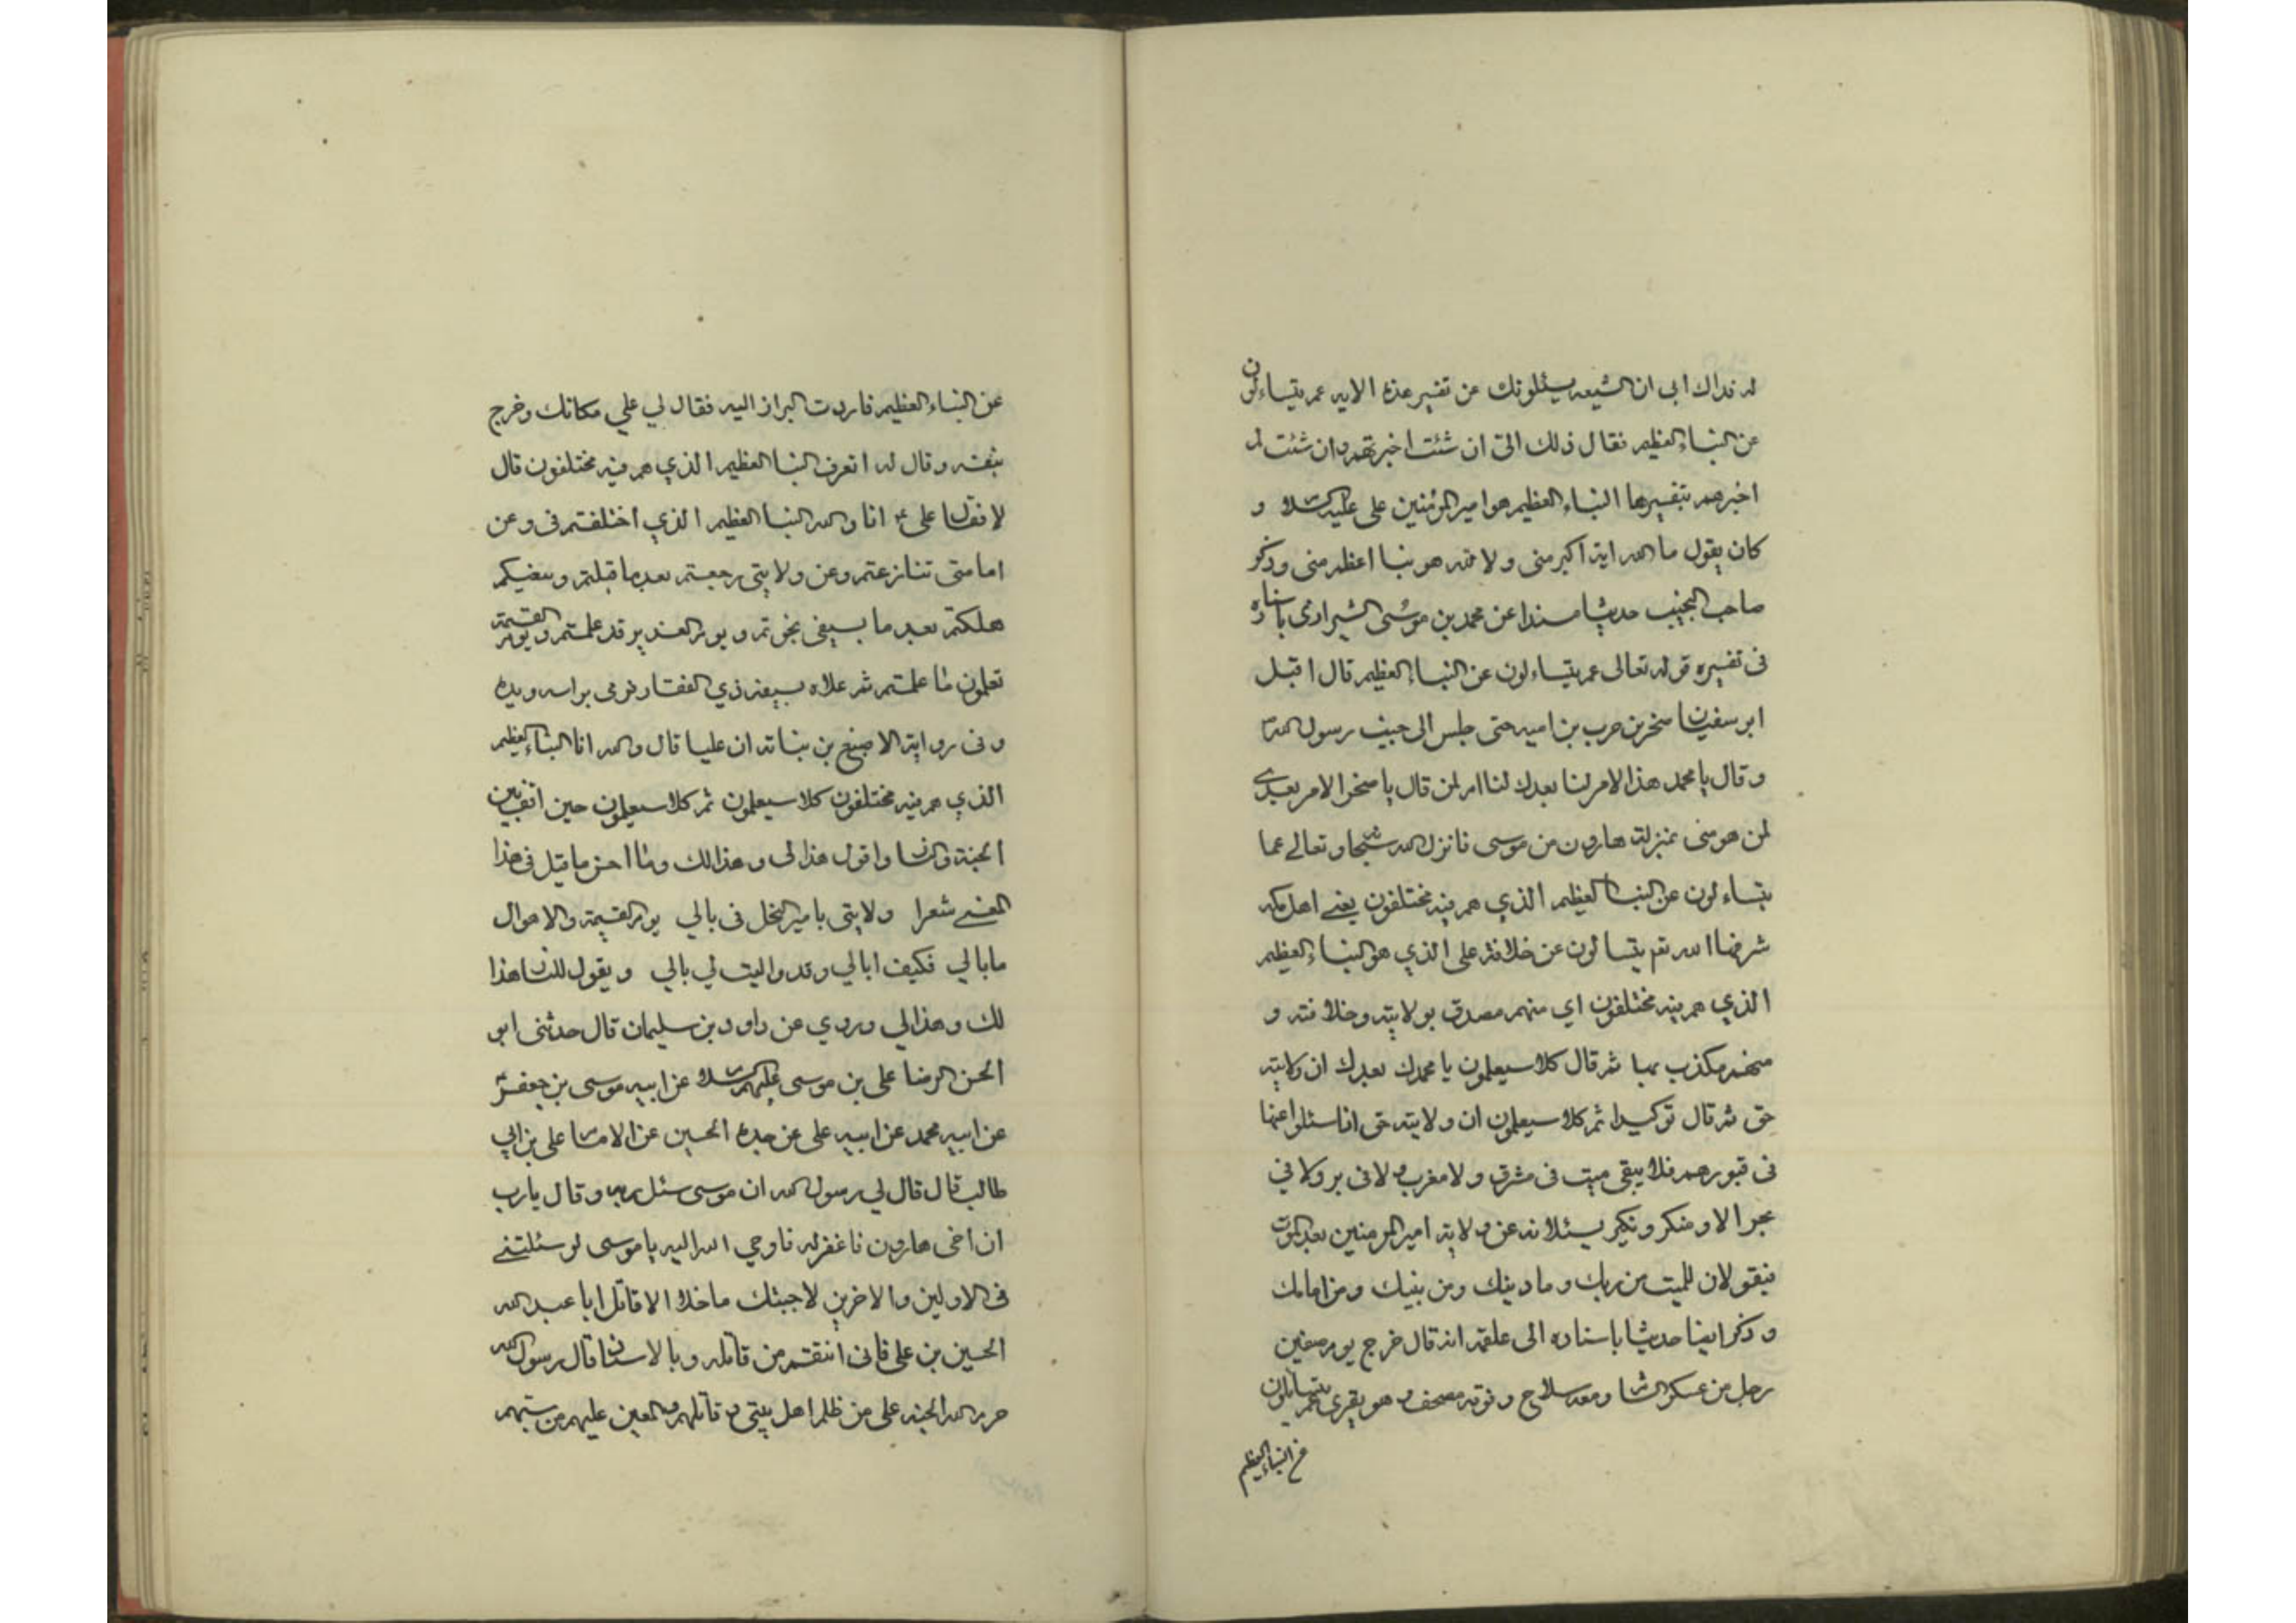 له فداك ابى ان الشيعه يسئلونك عن تفسير هذه الايه عم يتساءلون
عن النباء العظيم فقال ذلك الىّ ان شئت اخبرتهم وان شئت لم
اخبرهم بتفسيرها النباء العظيم هو امير المؤمنين على عليه السلام و
كان يقول ما لله اية اكبر منى ولا لله هو نبا اعظم منى وذكر
صاحب النخب حديثا مسندا عن محمد بن موسى الشيرازى باسناده
فى تفسيره قوله تعالى عم يتساءلون عن النباء العظيم قال اقبل
ابو سفيان سخر بن حرب بن اميه حتى جلس الى جنب رسول الله ص
وقال يا محمد هذا الامر لنا بعدك لنا ام لمن قال يا سخر الامر بعدى
لمن هو منى بمنزلة هارون من موسى فانزل الله سبحانه وتعالے عما
يتساءلون عن النباء العظيم الذي هم فيه مختلفون يعنے اهل مكه
ثم ضا الله نعم يتسالون عن خلافة على الذي هو النباء العظيم
الذي هم فيه مختلفون اي منهم مصدق بولايته وخلافته و
منهم مكذب بها ثم قال كلا سيعلمون يا محمدك بعدك ان ولايته
حق ثم قال توكيدا ثم كلا سيعلمون ان ولايته حق اذا سئلوا عنها
فى قبورهم فلا يبقى ميت فى مشرق ولا مغرب ولا فى بر ولا في
بحر الا ومنكر ونكير يسئلانه عن ولاية امير المومنين بعد الموت
فيقولان للميت من ربك وما دينك ومن نبيك ومن امامك
وذكر ايضا حديثا باسناده الى علقمه انه قال خرج يوم صفين
رجل من عسكر الشام ومعه سلاح وفوقه مصحف وهو يقرى عم يتسائلون
عن النباء العظيم
عن النباء العظيم فاردت البراز اليه فقال لي علي مكانك وخرج
بنفسه وقال له اتعرف النبا العظيم الذي هم فيه مختلفون قال
لا فقال على ع انا والله النبا العظيم الذي اختلفتم فى وعن
امامتى تنازعتم وعن ولايتى رجعتم بعد ما قبلتم وببغيكم
هلكتم بعد ما بسيفى نجوتم ويوم الغدير قد علمتم ويوم القيمة
تعلمون ما علمتم ثم علاه بسيفه ذي الفقار فرمى براسه ويده
وفى رواية الاصبغ بن نباته ان عليا قال والله انا النباء العظيم
الذي هم فيه مختلفون كلا سيعلمون ثم كلا سيعلمون حين اقف بين
الجنة والنار واقول هذا لى وهذا لك وما احسن ما قيل فى هذا
المعنے شعرا ولايتى بامير النحل فى بالي يوم القيمة والاهوال
مابالي فكيف ابالي وقد واليت لي بالي ويقول للنار هذا
لك وهذا لي وروي عن داود بن سليمان قال حدثنى ابو
الحسن الرضا على بن موسى عليهم السلام عن ابيه موسى بن جعفر
عن ابيه محمد عن ابيه على عن جده الحسين عن الامام على بن ابي
طالب قال قال لي رسول الله ان موسى سئل ربه وقال يارب
ان اخى هارون فاغفر له فاوحي الله اليه يا موسى لو سئلتنے
فى الاولين والاخرين لاجبتك ماخلا الا قاتل ابا عبد الله
الحسين بن على فانى انتقم من قاتله وبالاسناد قال رسول الله
حرم الله الجنه على من ظلم اهل بيتى وقاتلهم والمعين عليهم من سبهم